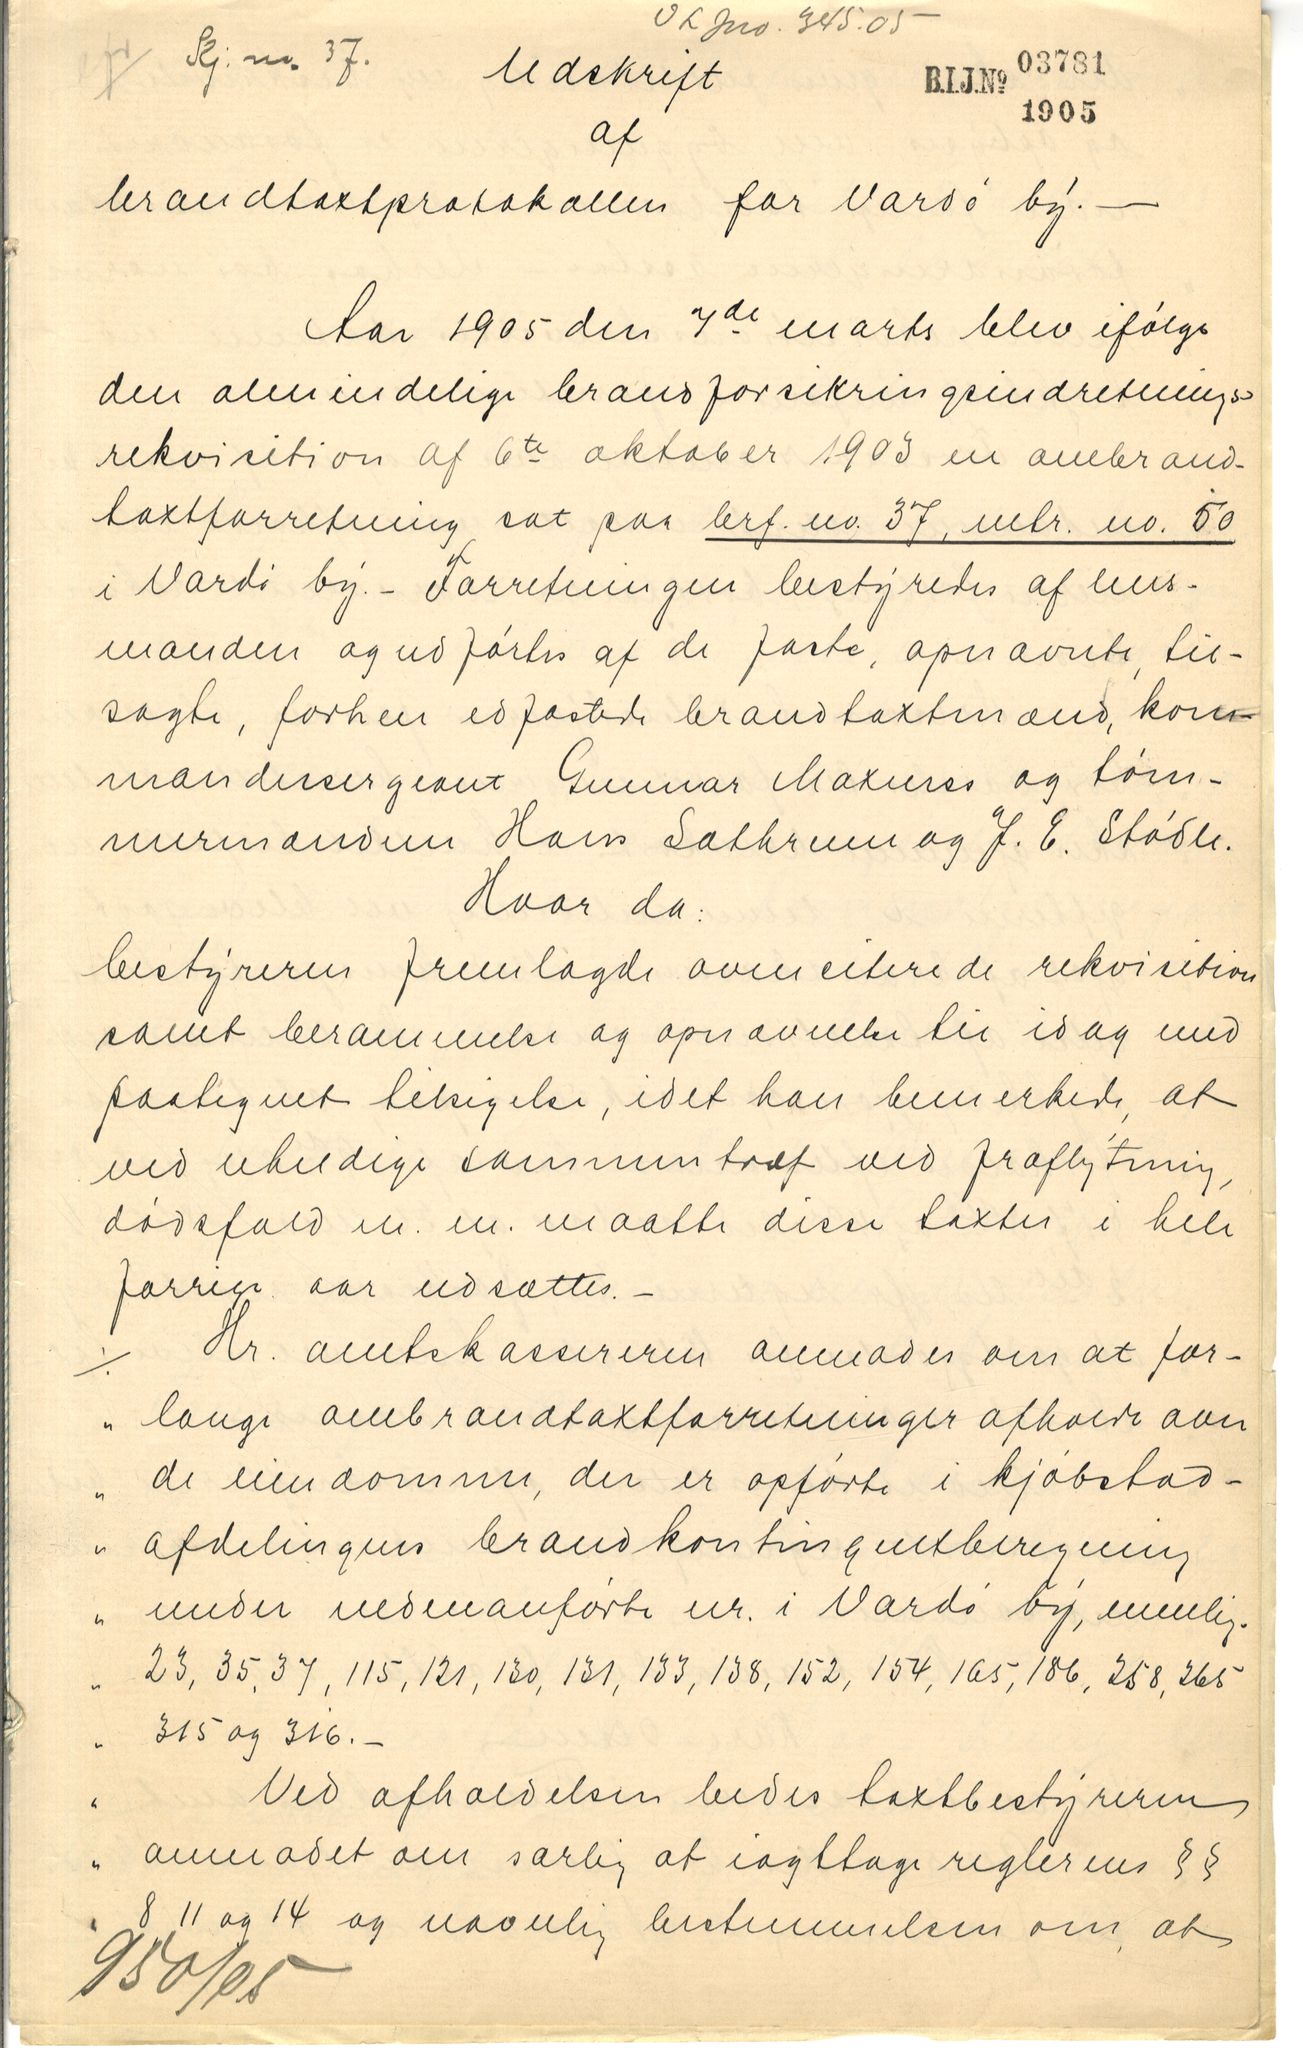 O L Jno. 345.05
Skj. no. 37.
Udskrift
B.I.J.Nº 03781
1905
af
brandtaxtprotokollen for Vardö by. —
Aar 1905 den 7de marts blev ifölge
den almindelige brandforsikringsindretnings
rekvisition af 6te oktober 1903 en ombrand-
taxtforretning sat paa brf. no. 37, mtr. no. 50
i Vardö by. - Forretningen bestyredes af lens-
manden og udförtes af de faste, opnævnte, til-
sagte, forhen edfæstede brandtaxtmænd, kom-
mandersergeant Gunnar Maxness og töm-
mermændene Hans Sathrum og J. E. Stödle.
Hvor da:
bestyreren fremlagde ovenciterede rekvisition
samt berammelse og opnævnelse til idag med
paategnet tilsigelse, idet han bemerkede, at
ved uheldige sammentræf ved fraflytning,
dödsfald m. m. maatte disse taxter i hele
forrige aar udsættes. -
⁒ Hr. amtskassereren anmodes om at for-
" lange ombrandtaxtforretninger afholdt over
" de eiendomme, der er opförte i kjöbstad-
" afdelingens brandkontingentberegning
" under nedenanförte nr. i Vardö by, nemlig.
" 23, 35, 37, 115, 121, 130, 131, 133, 138, 152, 154, 165, 186, 258, 265
" 315 og 316. -
" Ved afholdelsen bedes taxtbestyreren
" anmodet om særlig at iagttage reglernes § §
" 8 11 og 14 og navnlig bestemmelsen om, at
950/05